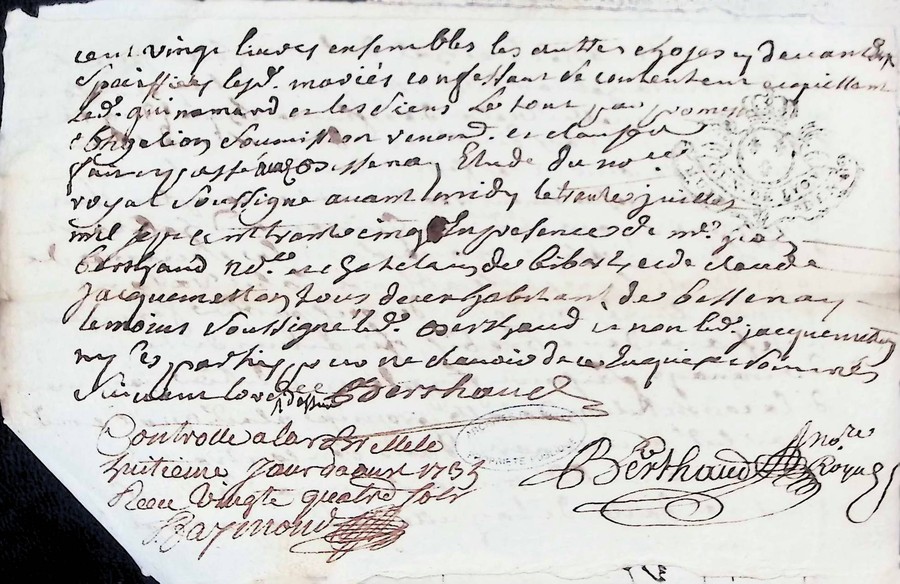 cent vingt livres ensembles les autres choses cy devant
spaciffiées lesd. mariés confessant de contenteur et quittent
led. guinamard et les siens Le tout par promes
obligation soumission renond. et clauses
fait et passé aud Bessenay Etude du no.re
royal soussigné avant midy le trante juillet
mil sept cent trante cinq En presence de m.e
Berthaud no.e et chatelain de bibost et de claude
Jacquemetton tous deux habitant de bessenay
temoins soussigné led. Berthaud et non led. jacquemetton
ny les parties pour ne scavoir de ce Enquis et sommés
suivant lord.ce Berthaud
Controllé a larbrelle le
huitieme jour daoust 1735
Receu vingt quatre sols
Raymond
Berthaud no.re Royal